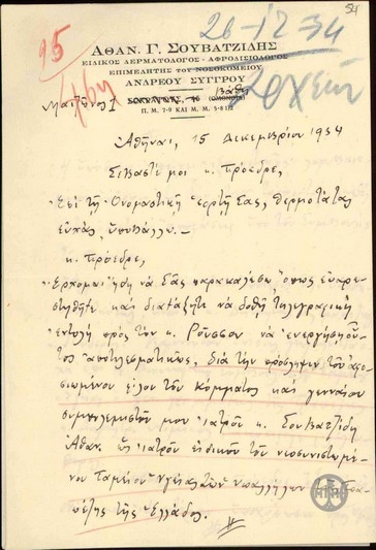 51
95
26-12-34
ΑΘΑΝ. Γ. ΣΟΥΒΑΤΖΙΔΗΣ
ΕΙΔΙΚΟΣ ΔΕΡΜΑΤΟΛΟΓΟΣ - ΑΦΡΟΔΙΣΙΟΛΟΓΟΣ
ΕΠΙΜΕΛΗΤΗΣ ΤΟΥ ΝΟΣΟΚΟΜΕΙΟΥ
ΑΝΔΡΕΟΥ ΣΥΓΓΡΟΥ
ΣΩΚΡΑΤΟΥΣ, 46 (ΟΜΟΝΟΙΑ)
Π. Μ. 7-9 ΚΑΙ Μ. Μ. 5-8 1/2
Ἀθῆναι, 15 Δεκεμβρίου 1934
Σεβαστέ μοι κ. Πρόεδρε,
Ἐπὶ τῇ Ὀνομαστικῇ ἑορτῇ Σας, θερμοτάτας
εὐχὰς ὑποβάλλω.
κ. Πρόεδρε,
Ἔρχομαι ἤδη νὰ Σᾶς παρακαλέσω, ὅπως εὐαρε-
στηθῆτε καὶ διατάξητε νὰ δοθῇ τηλεγραφικὴ
ἐντολὴ πρὸς τὸν κ. Ροῦσσον νὰ ἐνεργήσῃ οὗ-
τος ἀποτελεσματικῶς, διὰ τὴν πρόσληψιν τοῦ ἀφο-
σιωμένου φίλου τοῦ κόμματος καὶ γενναίου
συμπολεμιστοῦ μου ἰατροῦ κ. Σουβατζίδη
Ἀθαν. ὡς ἰατροῦ εἰδικοῦ τοῦ νεοσυνιστωμέ-
νου Ταμείου Ὑγείας τῶν Ὑπαλλήλων τῆς Τρα-
πέζης τῆς Ἑλλάδος.